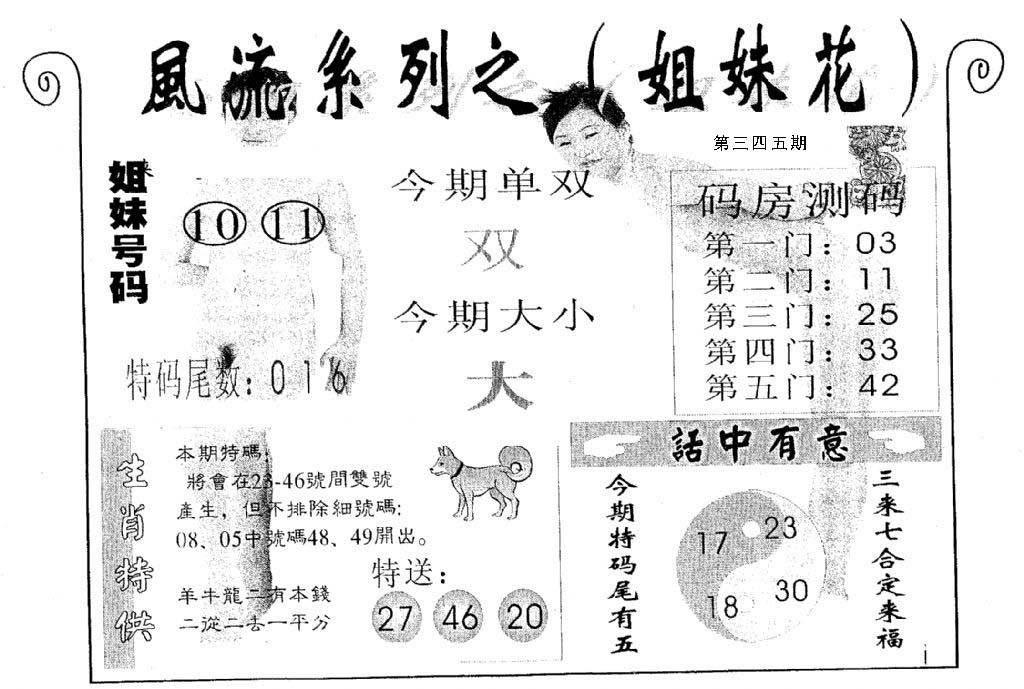 風流系列之（姐妹花）
第三四五期
姐妹号码
10 11
特码尾数：016
今期单双
双
今期大小
大
码房测码
第一门：03
第二门：11
第三门：25
第四门：33
第五门：42
生肖持供
本期特碼，
將會在23-46號間雙號
產生，但不排除細號碼:
08、05中號碼48、49開出。
羊牛龍二有本錢
二從二去一平分
特送：
27 46 20
話中有意
今期特码尾有五
17 23
18 30
三来七合定来福